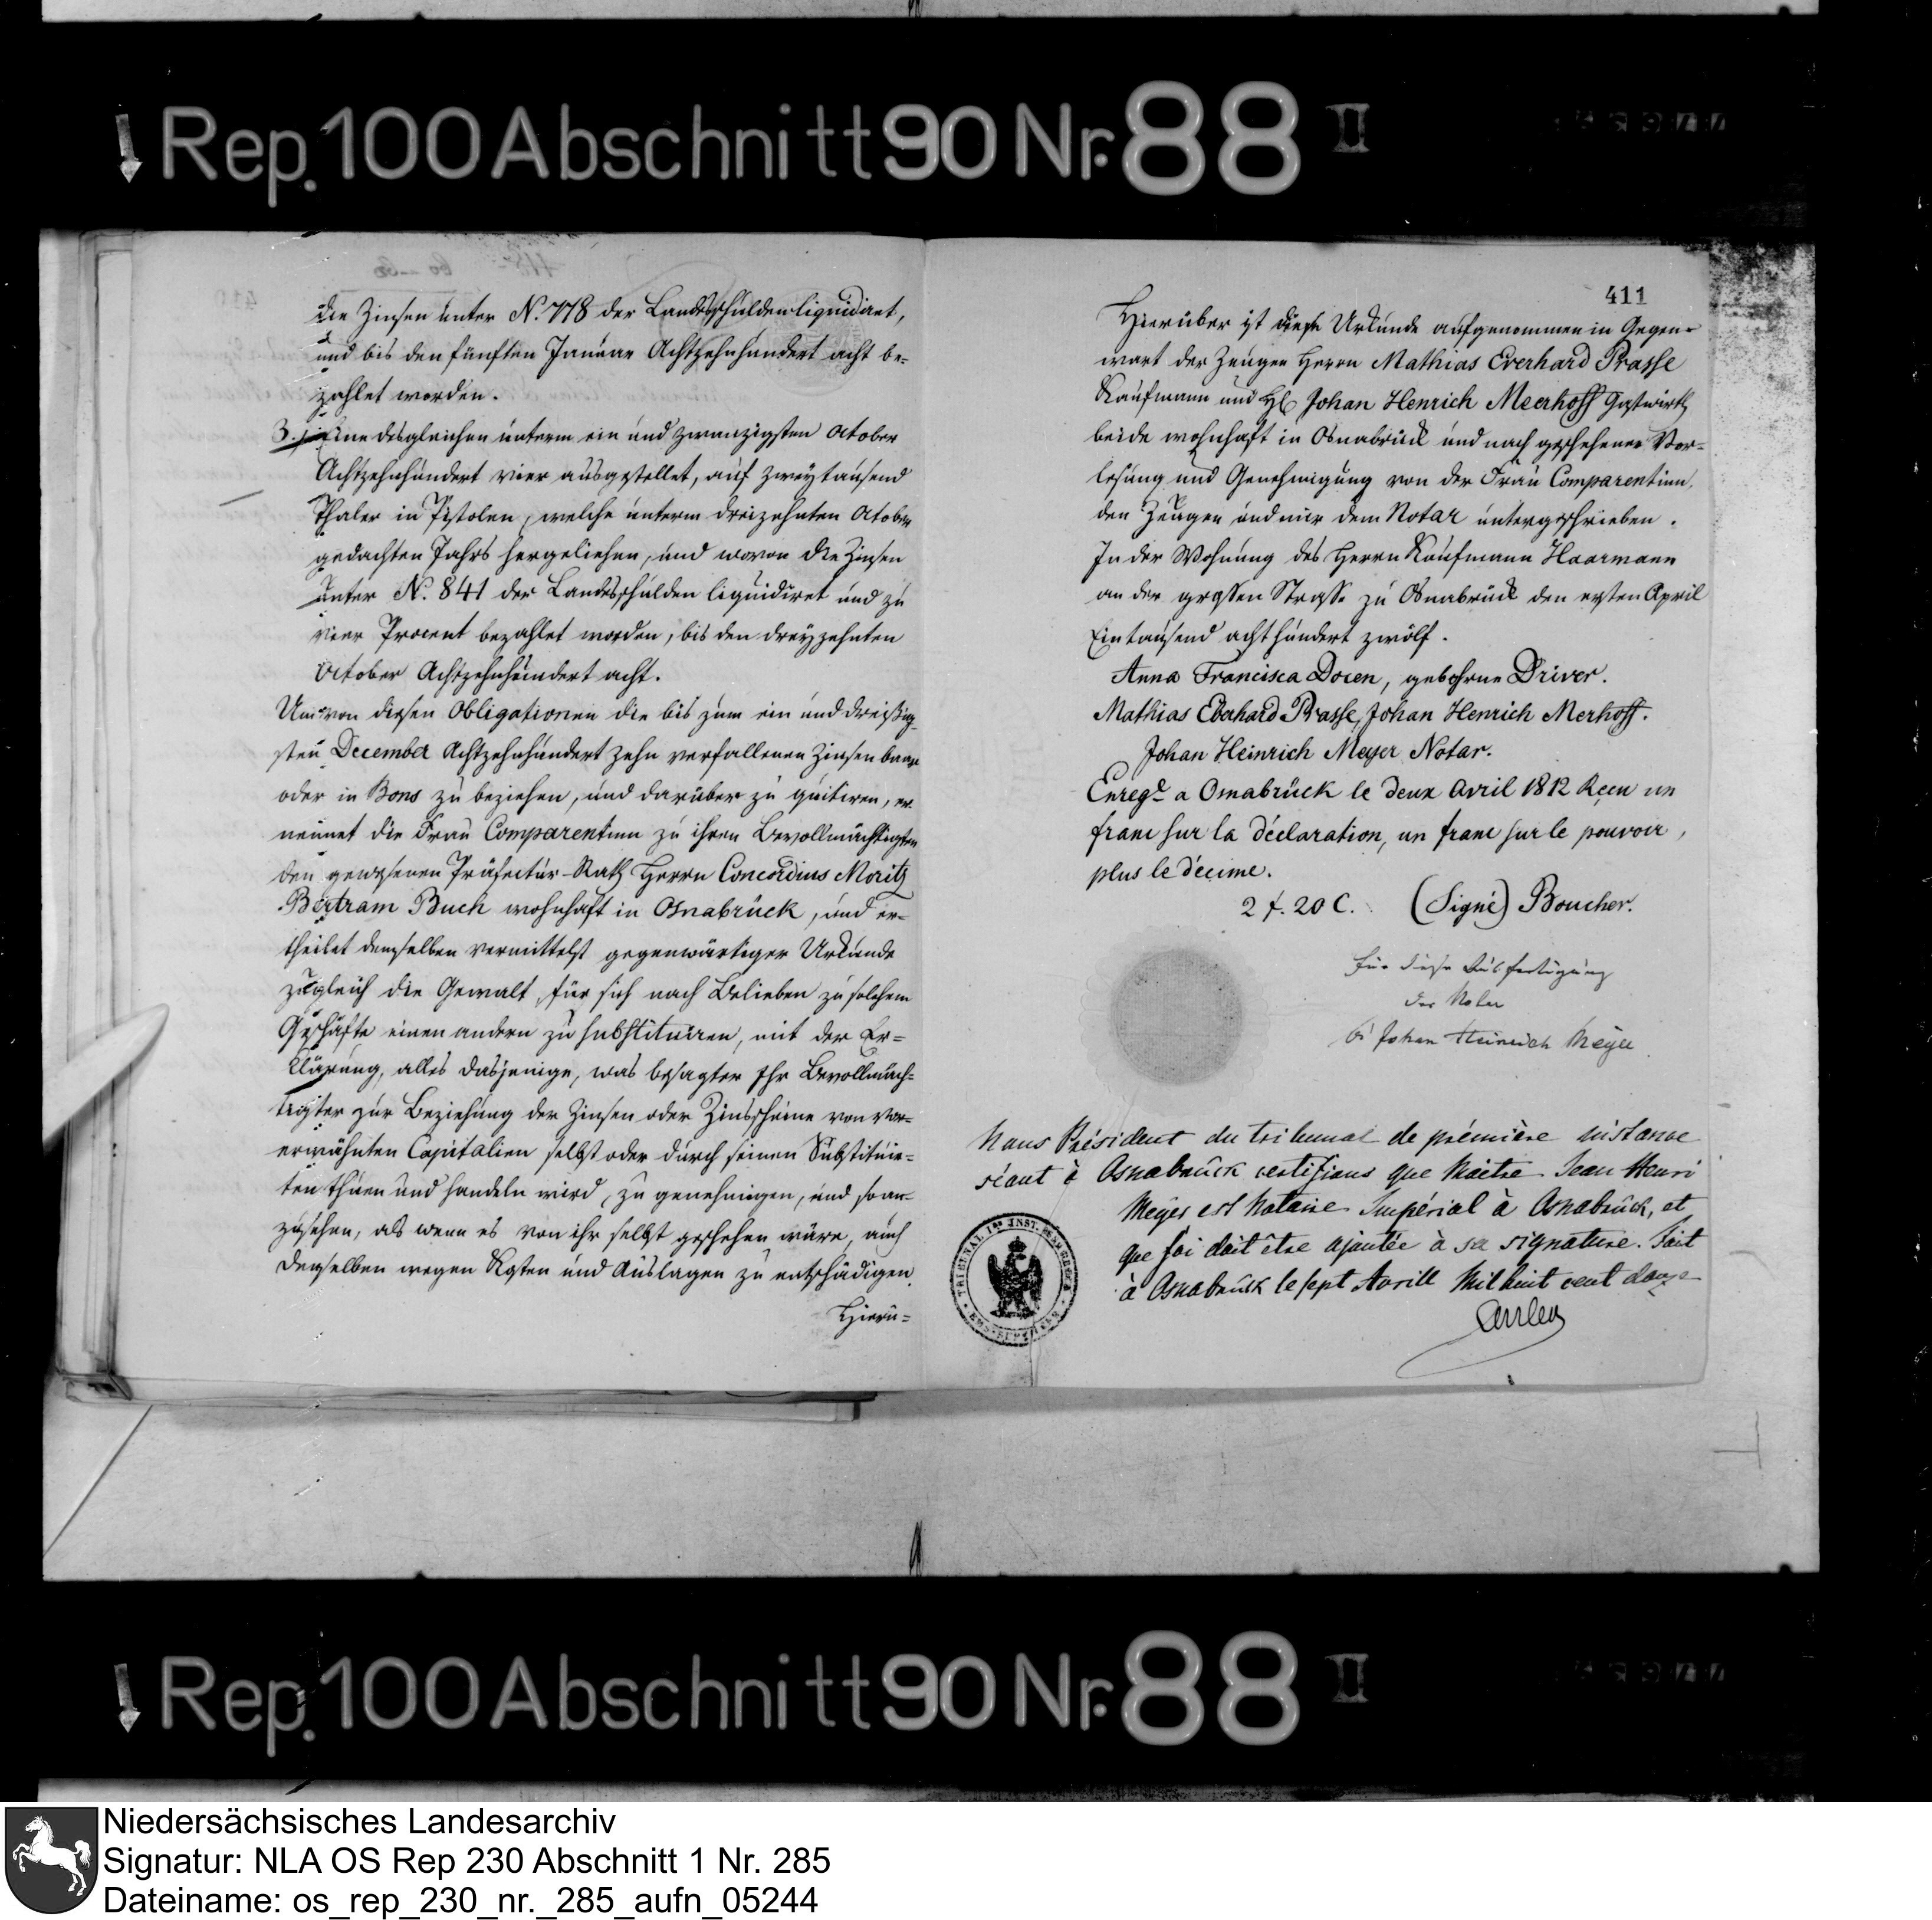 Rep. 100 Abschnitt 90 Nr. 88 II
die Zinsen unter N. 778 der Landesschulden liquidiret,
und bis den fünften Januar Achtzehnhundert acht be-
zahlet worden.
3. Eine desgleichen unterm ein und zwanzigsten October
Achtzehnhundert vier ausgestellet, auf zweytausend
Thaler in Pistolen, welche unterm dreizehnten October
gedachten Jahrs hergeliehen, und wovon die Zinsen
unter N. 841 der Landesschulden liquidiret und zu
vier Procent bezahlet worden, bis den dreyzehnten
October Achtzehnhundert acht.
Um von diesen Obligationen die bis zum ein und dreißig-
sten December Achtzehnhundert zehn verfallenen Zinsen baar
oder in Bons zu beziehen, und darüber zu quitiren, er
nennet die Frau Comparentinn zu ihren Bevollmächtigten
den gewesenen Präfectur-Rath Herrn Concordius Moritz
Bertram Buch wohnhaft in Osnabrück, und er-
theilet demselben vermittelst gegenwärtiger Urkunde
zugleich die Gewalt, für sich nach Belieben zu solchem
Geschäfte einen andern zu substituiren, mit der Er-
klärung, alles dasjenige, was besagter Ihr Bevollmäch-
tigter zur Beziehung der Zinsen oder Zinsscheine von vor-
erwähnten Capitalien selbst oder durch seinen Substituir-
ten thuen und handeln wird, zu genehmigen, und so an-
zusehen, als wenn es von ihr selbst geschehen wäre, auch
denselben wegen Kosten und Auslagen zu entschädigen.
Hierü-
411
Hierüber ist diese Urkunde aufgenommen in Gegen-
wart der Zeugen Herrn Mathias Everhard Prasse
Kaufmann und H. Johan Henrich Meerhoff Gastwirth
beide wohnhaft in Osnabrück und nach geschehener Vor-
lesung und Genehmigung von der Frau Comparentinn,
den Zeugen und mir dem Notar unterschrieben.
In der Wohnung des Herrn Kaufmann Haarmann
an der grossen Strasse zu Osnabrück den ersten April
Eintausend achthundert zwölf.
Anna Francisca Dorn, gebohrne Driver.
Mathias Eberhard Prasse, Johan Henrich Merhoff.
Johan Heinrich Meyer Notar.
Enregé a Osnabrück le deux Avril 1812 Reçu un
franc sur la déclaration, un franc sur le pouvoir,
plus le décime.
2 f. 20 C. (Signé) Boucher.
für diese Ausfertigung
der Notar
Johan Heinrich Meyer
Nous Président du tribunal de prémière instance
séant à Osnabrück certifions que Maitre Jean Henri
Meyer est Notaire Impérial à Osnabrück, et
que foi doit être ajoutée à sa signature. Fait
à Osnabrück le sept Avrill Mil huit cent douze
Rep. 100 Abschnitt 90 Nr. 88 II
Niedersächsisches Landesarchiv
Signatur: NLA OS Rep 230 Abschnitt 1 Nr. 285
Dateiname: os_rep_230_nr._285_aufn_05244